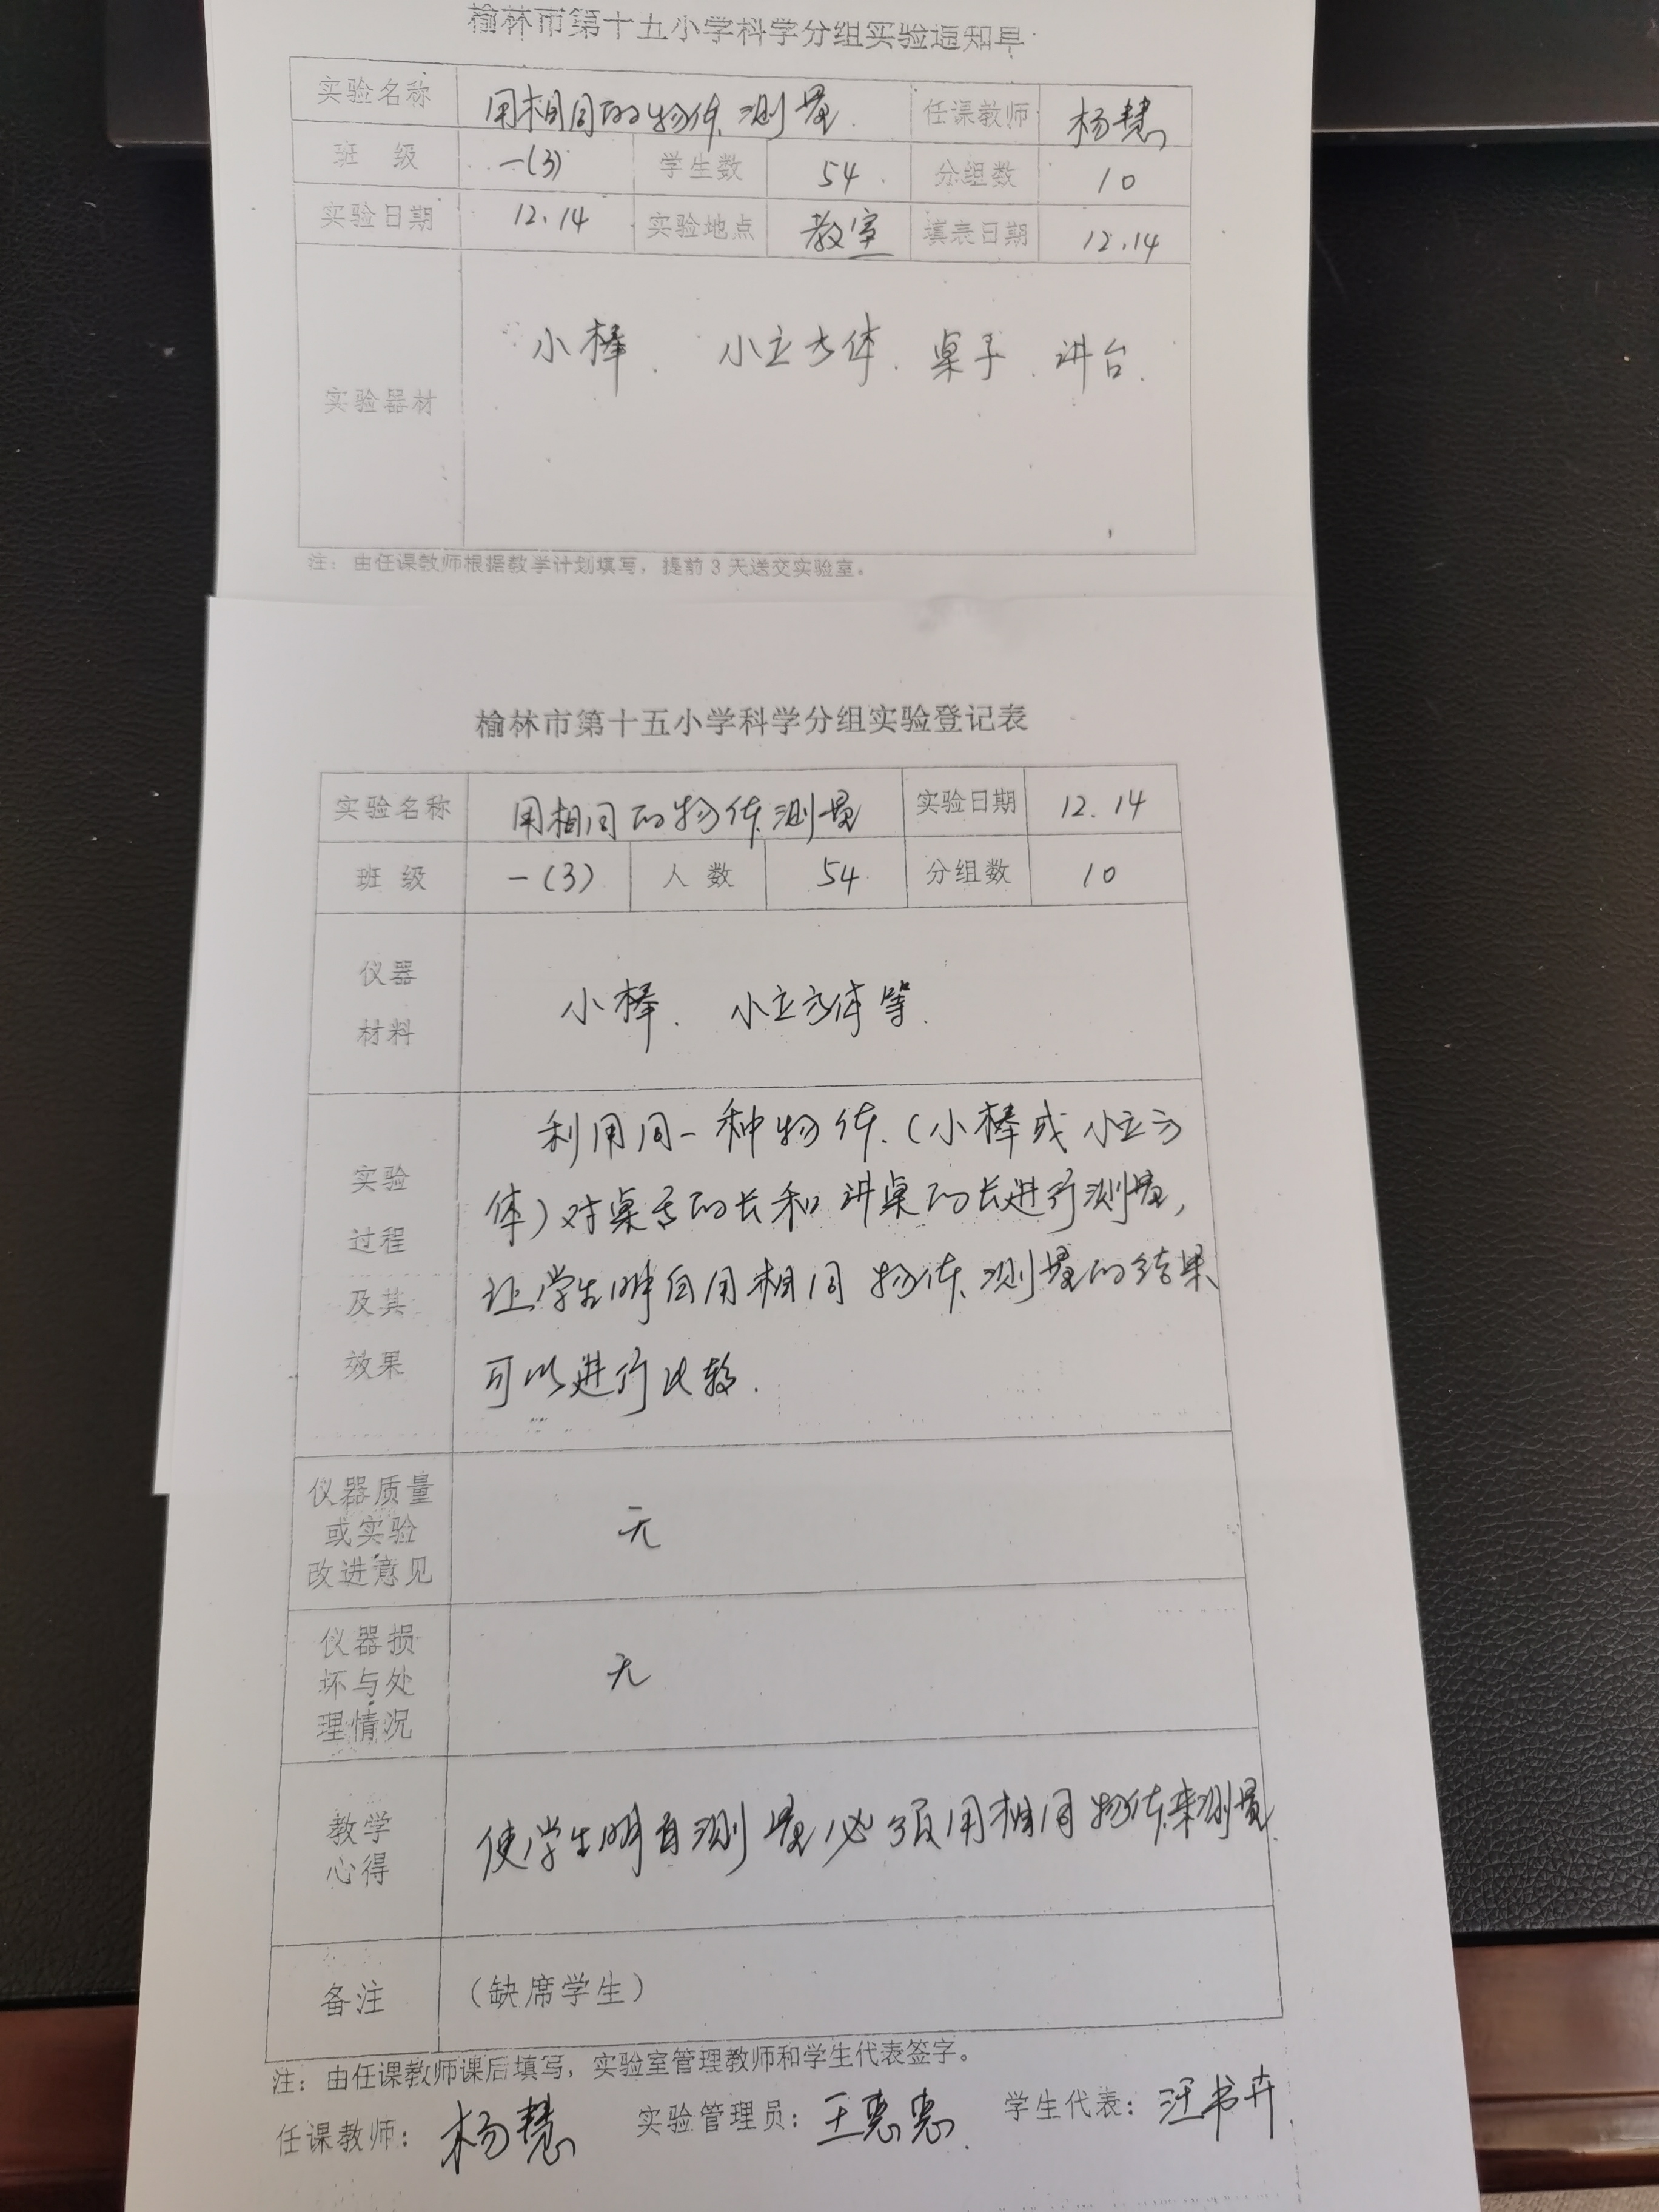 榆林市第十五小学科学分组实验通知单
实验名称 用相同的物体测量. 任课教师 杨慧
班 级 一(3) 学生数 54 分组数 10
实验日期 12.14 实验地点 教室 填表日期 12.14
实验器材 小棒. 小立方体. 桌子. 讲台.
注：由任课教师根据教学计划填写，提前 3 天送交实验室。
榆林市第十五小学科学分组实验登记表
实验名称 用相同的物体测量 实验日期 12.14
班 级 一(3) 人 数 54 分组数 10
仪器
材料
小棒. 小立方体等.
实验
过程
及其
效果
利用同一种物体.(小棒或小立方
体)对桌子的长和讲桌的长进行测量,
让学生明白用相同物体测量的结果
可以进行比较.
仪器质量
或实验
改进意见
无
仪器损
坏与处
理情况
无
教学
心得
使学生明白测量必须用相同物体来测量.
备注 （缺席学生）
注：由任课教师课后填写，实验室管理教师和学生代表签字。
任课教师：杨慧 实验管理员：王惠惠. 学生代表：汪书卉.